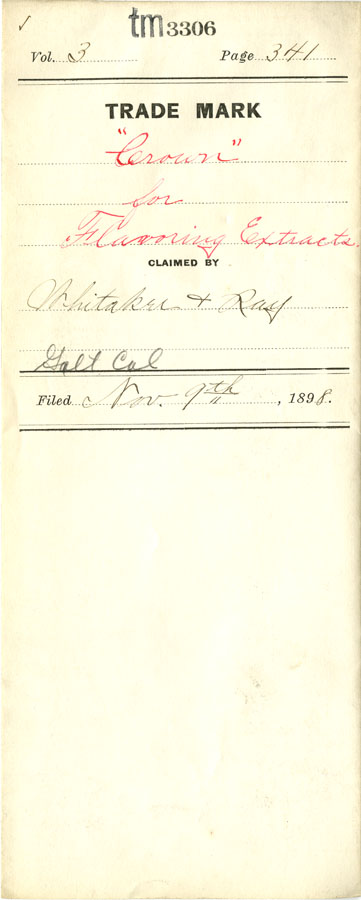 tm 3306
Vol. 3 Page 341
TRADE MARK
"Crown"
for
Flavoring Extracts.
CLAIMED BY
Whitaker & Ray
Galt Cal
Filed Nov. 9th, 1898.